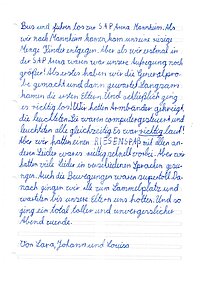 Bus und fuhren los zur S A P Arena Mannheim. Als
wir nach Mannheim kamen, kam unsere riesige
Menge Kinder entgegen. Aber als wir erstmal in
der S A P Arena waren war unsere Aufregung noch
größer! Als erstes haben wir die Generalpro-
be gemacht und dann gewartet. Langsam
kamen die ersten Eltern und schließlich ging
es richtig los! Wir hatten Armbänder gekriegt,
die leuchteten. Sie waren computergesteuert und
leuchteten alle gleichzeitig. Es war richtig laut!
Aber wir hatten einen RIESENSPAß mit allen an-
deren. Leider war es ruckzuck schnell vorbei. Aber wir
hatten viele Lieder in verschiedenen Sprachen gesun-
gen. Auch die Bewegungen waren supertoll. Da-
nach gingen wir alle zum Sammelplatz und
warteten bis unsere Eltern uns holten. Und so
ging ein total toller und unvergesslicher
Abend zuende.
Von Lara, Johann und Louisa